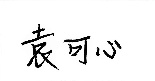 袁可心